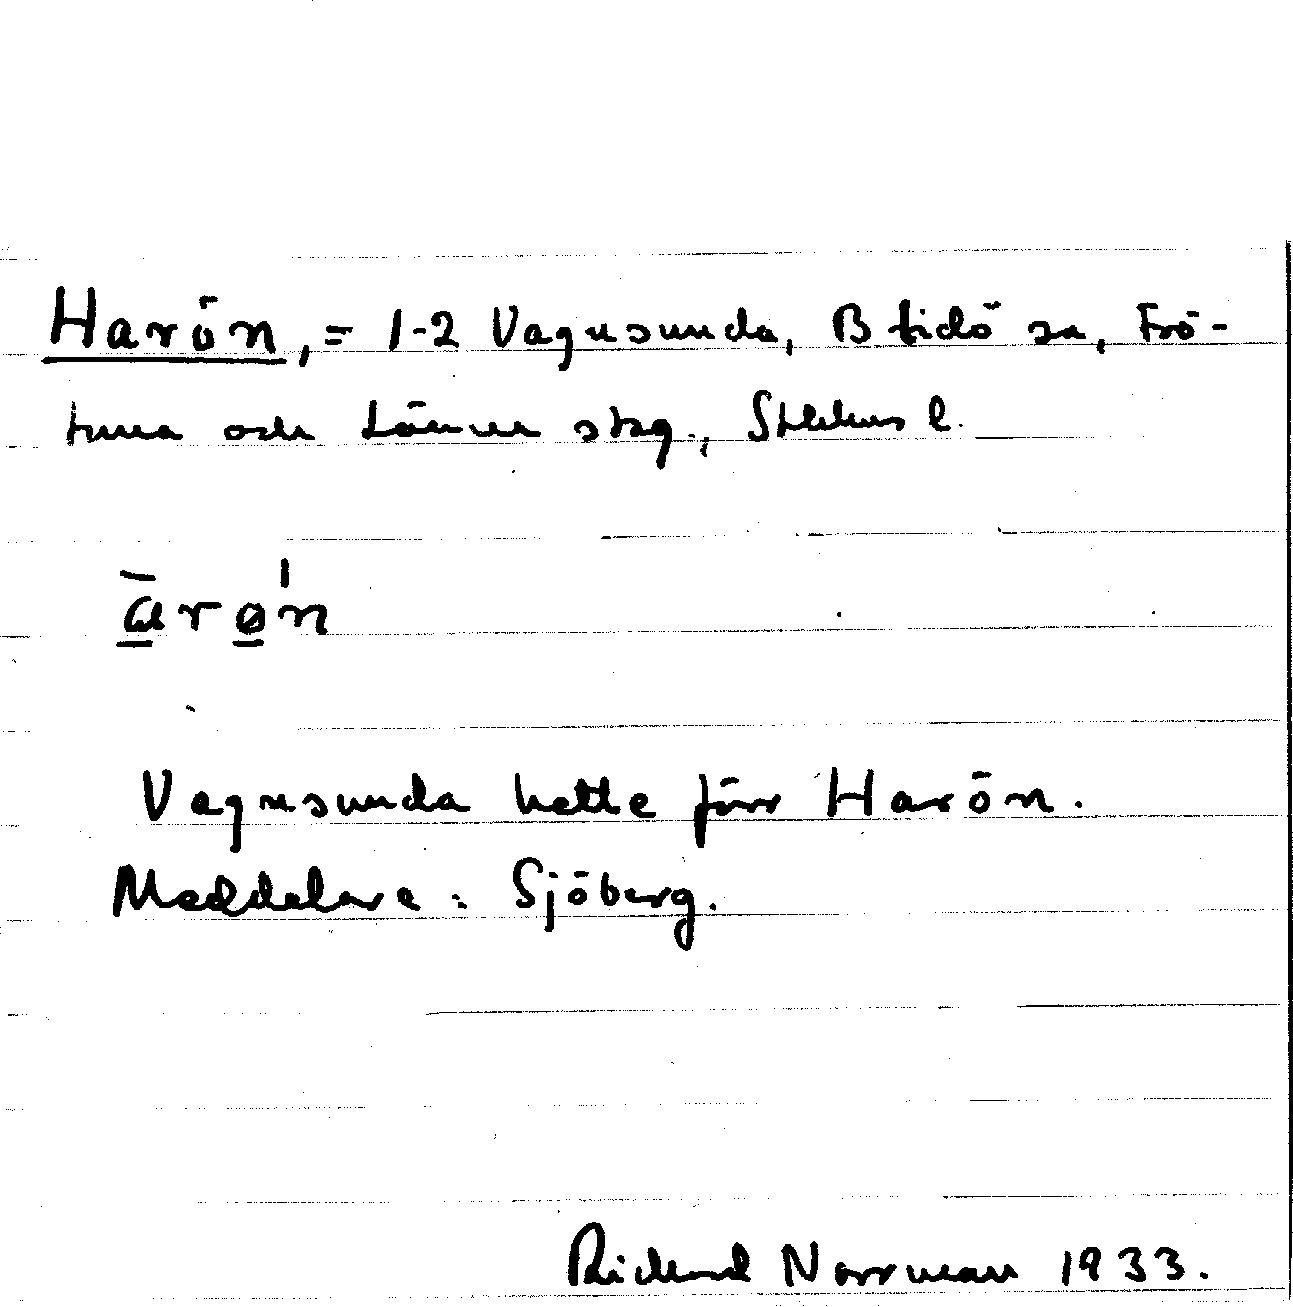 Harön, = 1-2 Vagnsunda, Blidö sn, Frö-
tuna och Länna skg., Sthlms l.
ɑ̲̄rø̲ˈn
Vagnsunda hette förr Harön.
Meddelare: Sjöberg.
Rickard Norrman 1933.